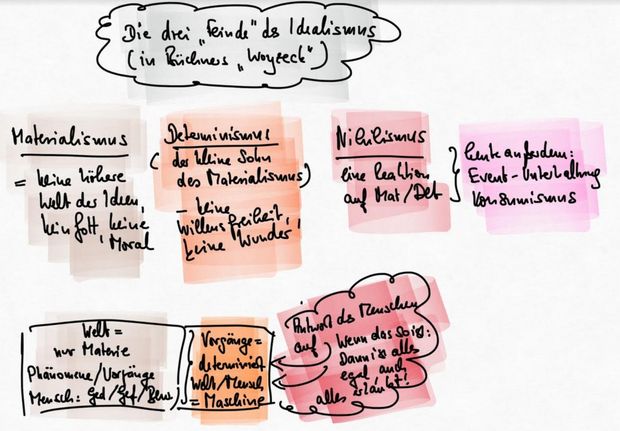 Die drei „Feinde" des Idealismus
(in Büchners „Woyzeck")
Materialismus
= keine höhere
Welt der Ideen,
kein Gott, keine
Moral
Determinismus
(der kleine Sohn
des Materialismus)
- keine
Willensfreiheit,
keine "Wunder"
Nihilismus
eine Reaktion
auf Mat/Det
heute außerdem:
Event-Unterhaltung
Konsumismus
Welt =
nur Materie
Phänomene/Vorgänge
Mensch: Ged/Gef/Bew
Vorgänge =
determiniert
Welt/Mensch
= Maschine
Antwort des Menschen
auf Wenn das so ist:
Dann ist alles
egal auch
alles erlaubt!